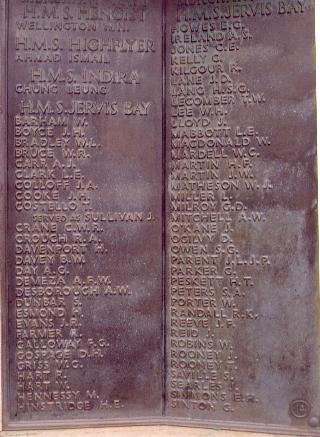 H.M.S. HENGIST
WELLINGTON H.H.
H.M.S. HIGHFLYER
AHMAD ISMAIL
H.M.S. INDIRA
CHUNG LEUNG
H.M.S. JERVIS BAY
BARHAM W.
BOYCE J.H.
BRADLEY W.L.
BRUCE W.R.
CHILD A.J.
CLARK L.E.
COLLOFF J.A.
COOPER J.H.
COSTELLO
SERVED AS SULLIVAN J.
CRANE C.W.R.
CROUCH R.A.
DAVENPORT H.
DAVEY B.W.
DAY A.G.
DENEZA A.F.W.
DESBOROUGH A.W.
DUNBAR S.
ESMOND H.
EVANS J.F.
FARMER A.
GALLOWAY F.G.
GOSPAGE D.H.
GRISS W.G.
HARE R.
HART W.
HENNESSY M.
HINSTRIDGE H.E.
H.M.S. JERVIS BAY
HOWES B.C.
IRELAND A.S.
JONES C.E.
KELLY G.
KILGOUR R.
LANE H.D.
LANG H.S.G.
LECOMBER T.W.
LEE W.H.
LLOYD J.
MABBOTT L.E.
MACDONALD W.
MARDELL W.G.
MARTIN H.F.
MARTIN J.W.
MATHESON W.J.
MILLER L.
MILROY G.D.
MITCHELL A.W.
O'KANE J.
OGILVY D.
OWEN S.G.
PARENT J.L.J.P.
PARKER G.
PESKETT H.T.
PETERS R.A.
PORTER W.
RANDALL R.K.
REEVE J.F.
REID J.
ROBINS W.
ROONEY J.
ROONEY T.
SAVILLE S.
SEARLES L.
SIMMONS E.H.
SINTON G.